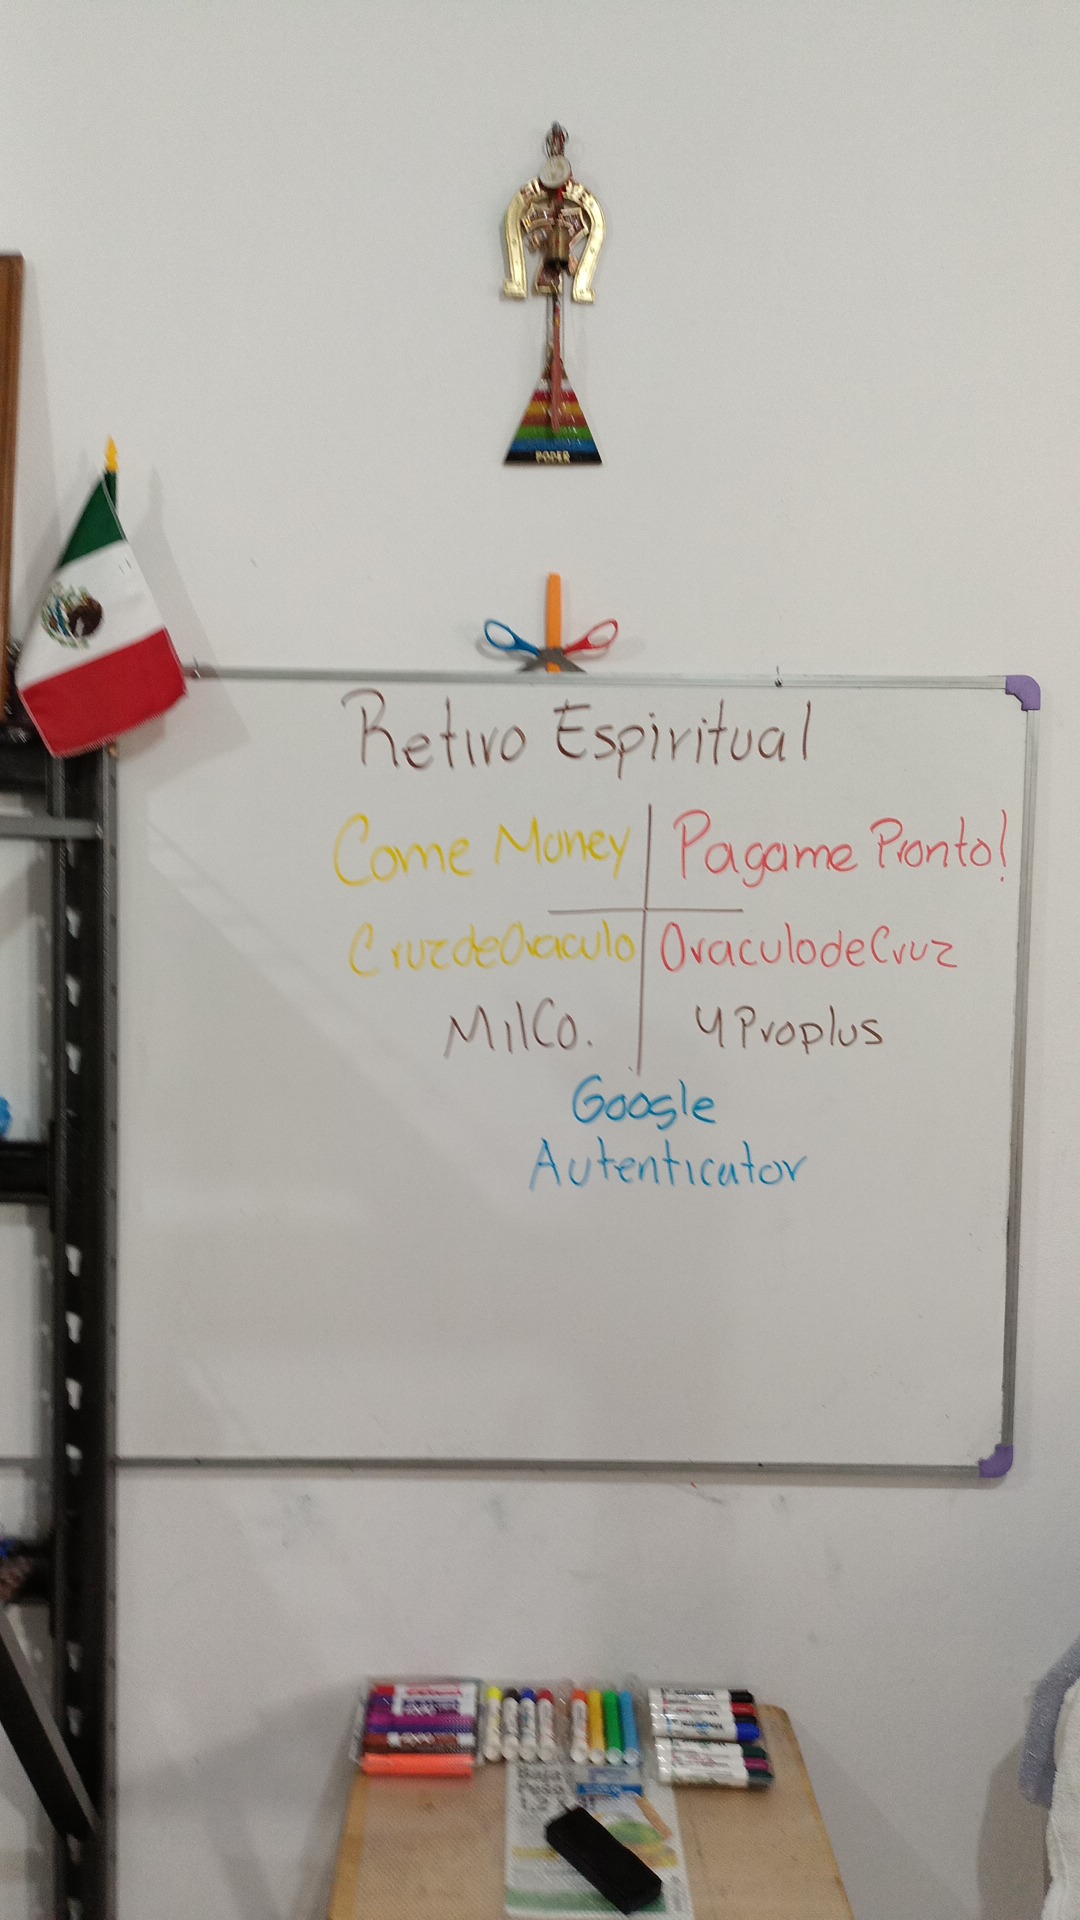 PODER
Retiro Espiritual
Come Money
Pagame Pronto!
CruzdeOraculo
OraculodeCruz
MilCo.
4Proplus
Google
Autenticator